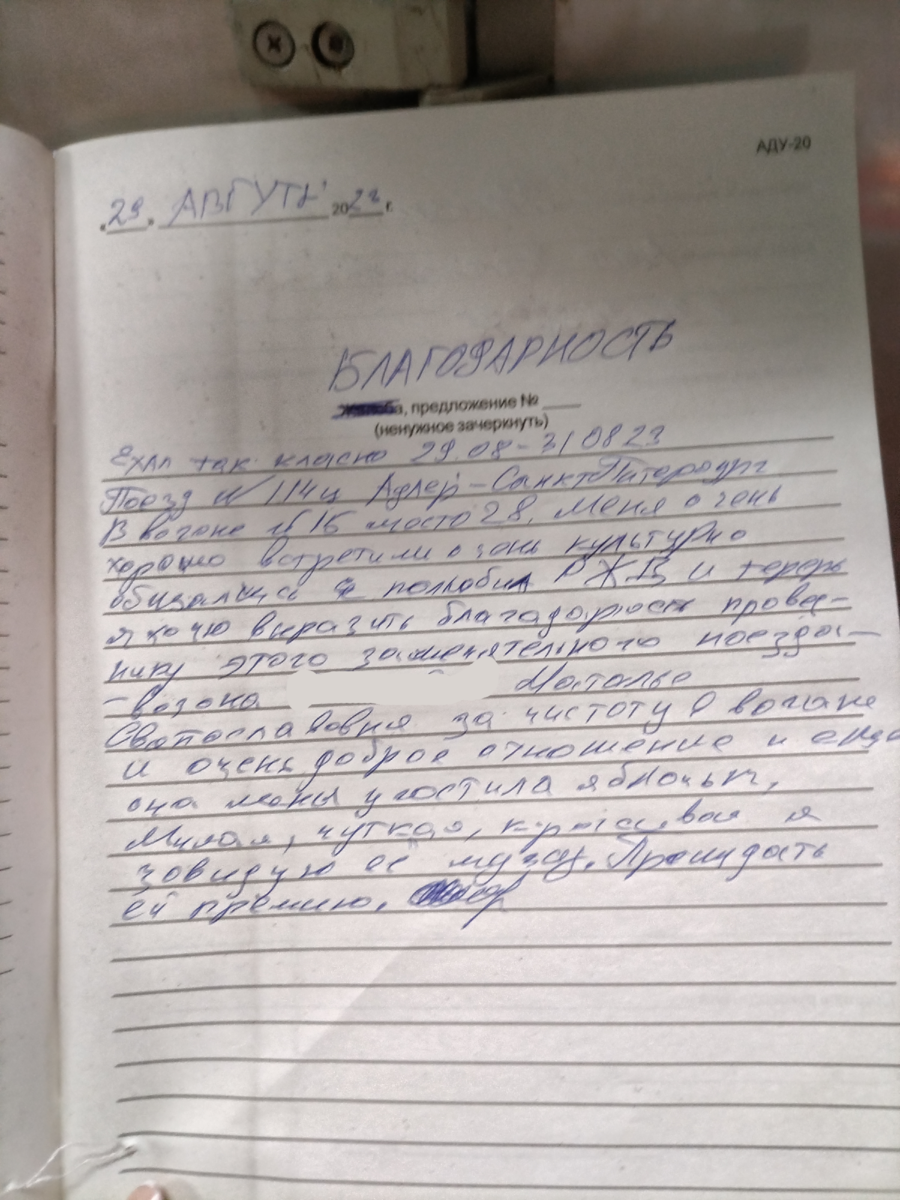 АДУ-20
"29" АВГУТЬ 2023 г.
БЛАГОДАРНОСТЬ
Жалоба, предложение № ____
(ненужное зачеркнуть)
Ехал так класно 29.08-310823
Поезд № 114ц Адлер-Санкт Питербург
В вагоне № 15 место 28. Меня очень
хорошо встретили очень культурно
общались я полюбил РЖД и теперь
я хочю выразить благадарность провод-
нику этого замечятельного поезда-
-вагона Наталье
Святославовня за чистоту в вагане
и очень доброе отношение и ещо
она меня угостила яблочьки,
Милая, чуткая, красивая я
завидую её мужу. Прошу дать
ей премию.